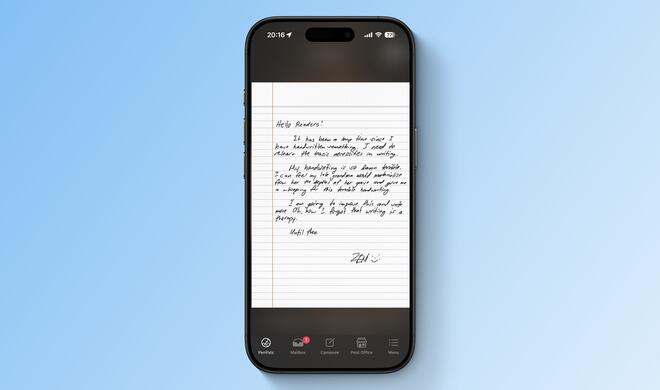 20:16
77
Hello Readers!
It has been a long time since I
have handwritten something. I need to
relearn the basic necessities in writing.
My handwriting is so damn terrible.
I can feel my late grandma would
from her the depths of her grave and give me
a whooping for this terrible handwriting.
I am going to improve this and write
more. Oh, how I forgot that writing is a
therapy.
Until then
1
PenPals Mailbox Compose Post Office Menu